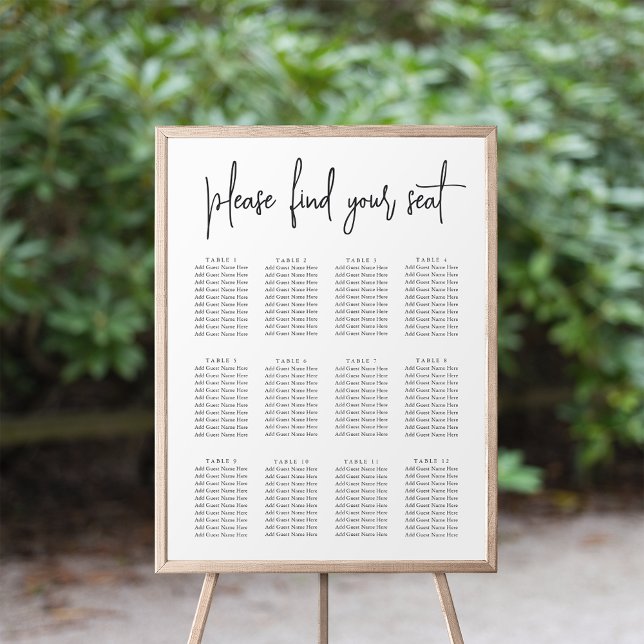 please find your seat
TABLE 1
Add Guest Name Here
Add Guest Name Here
Add Guest Name Here
Add Guest Name Here
Add Guest Name Here
Add Guest Name Here
Add Guest Name Here
Add Guest Name Here
Add Guest Name Here
Add Guest Name Here
TABLE 2
Add Guest Name Here
Add Guest Name Here
Add Guest Name Here
Add Guest Name Here
Add Guest Name Here
Add Guest Name Here
Add Guest Name Here
Add Guest Name Here
Add Guest Name Here
Add Guest Name Here
TABLE 3
Add Guest Name Here
Add Guest Name Here
Add Guest Name Here
Add Guest Name Here
Add Guest Name Here
Add Guest Name Here
Add Guest Name Here
Add Guest Name Here
Add Guest Name Here
Add Guest Name Here
TABLE 4
Add Guest Name Here
Add Guest Name Here
Add Guest Name Here
Add Guest Name Here
Add Guest Name Here
Add Guest Name Here
Add Guest Name Here
Add Guest Name Here
Add Guest Name Here
Add Guest Name Here
TABLE 5
Add Guest Name Here
Add Guest Name Here
Add Guest Name Here
Add Guest Name Here
Add Guest Name Here
Add Guest Name Here
Add Guest Name Here
Add Guest Name Here
Add Guest Name Here
Add Guest Name Here
TABLE 6
Add Guest Name Here
Add Guest Name Here
Add Guest Name Here
Add Guest Name Here
Add Guest Name Here
Add Guest Name Here
Add Guest Name Here
Add Guest Name Here
Add Guest Name Here
Add Guest Name Here
TABLE 7
Add Guest Name Here
Add Guest Name Here
Add Guest Name Here
Add Guest Name Here
Add Guest Name Here
Add Guest Name Here
Add Guest Name Here
Add Guest Name Here
Add Guest Name Here
Add Guest Name Here
TABLE 8
Add Guest Name Here
Add Guest Name Here
Add Guest Name Here
Add Guest Name Here
Add Guest Name Here
Add Guest Name Here
Add Guest Name Here
Add Guest Name Here
Add Guest Name Here
Add Guest Name Here
TABLE 9
Add Guest Name Here
Add Guest Name Here
Add Guest Name Here
Add Guest Name Here
Add Guest Name Here
Add Guest Name Here
Add Guest Name Here
Add Guest Name Here
Add Guest Name Here
Add Guest Name Here
TABLE 10
Add Guest Name Here
Add Guest Name Here
Add Guest Name Here
Add Guest Name Here
Add Guest Name Here
Add Guest Name Here
Add Guest Name Here
Add Guest Name Here
Add Guest Name Here
Add Guest Name Here
TABLE 11
Add Guest Name Here
Add Guest Name Here
Add Guest Name Here
Add Guest Name Here
Add Guest Name Here
Add Guest Name Here
Add Guest Name Here
Add Guest Name Here
Add Guest Name Here
Add Guest Name Here
TABLE 12
Add Guest Name Here
Add Guest Name Here
Add Guest Name Here
Add Guest Name Here
Add Guest Name Here
Add Guest Name Here
Add Guest Name Here
Add Guest Name Here
Add Guest Name Here
Add Guest Name Here